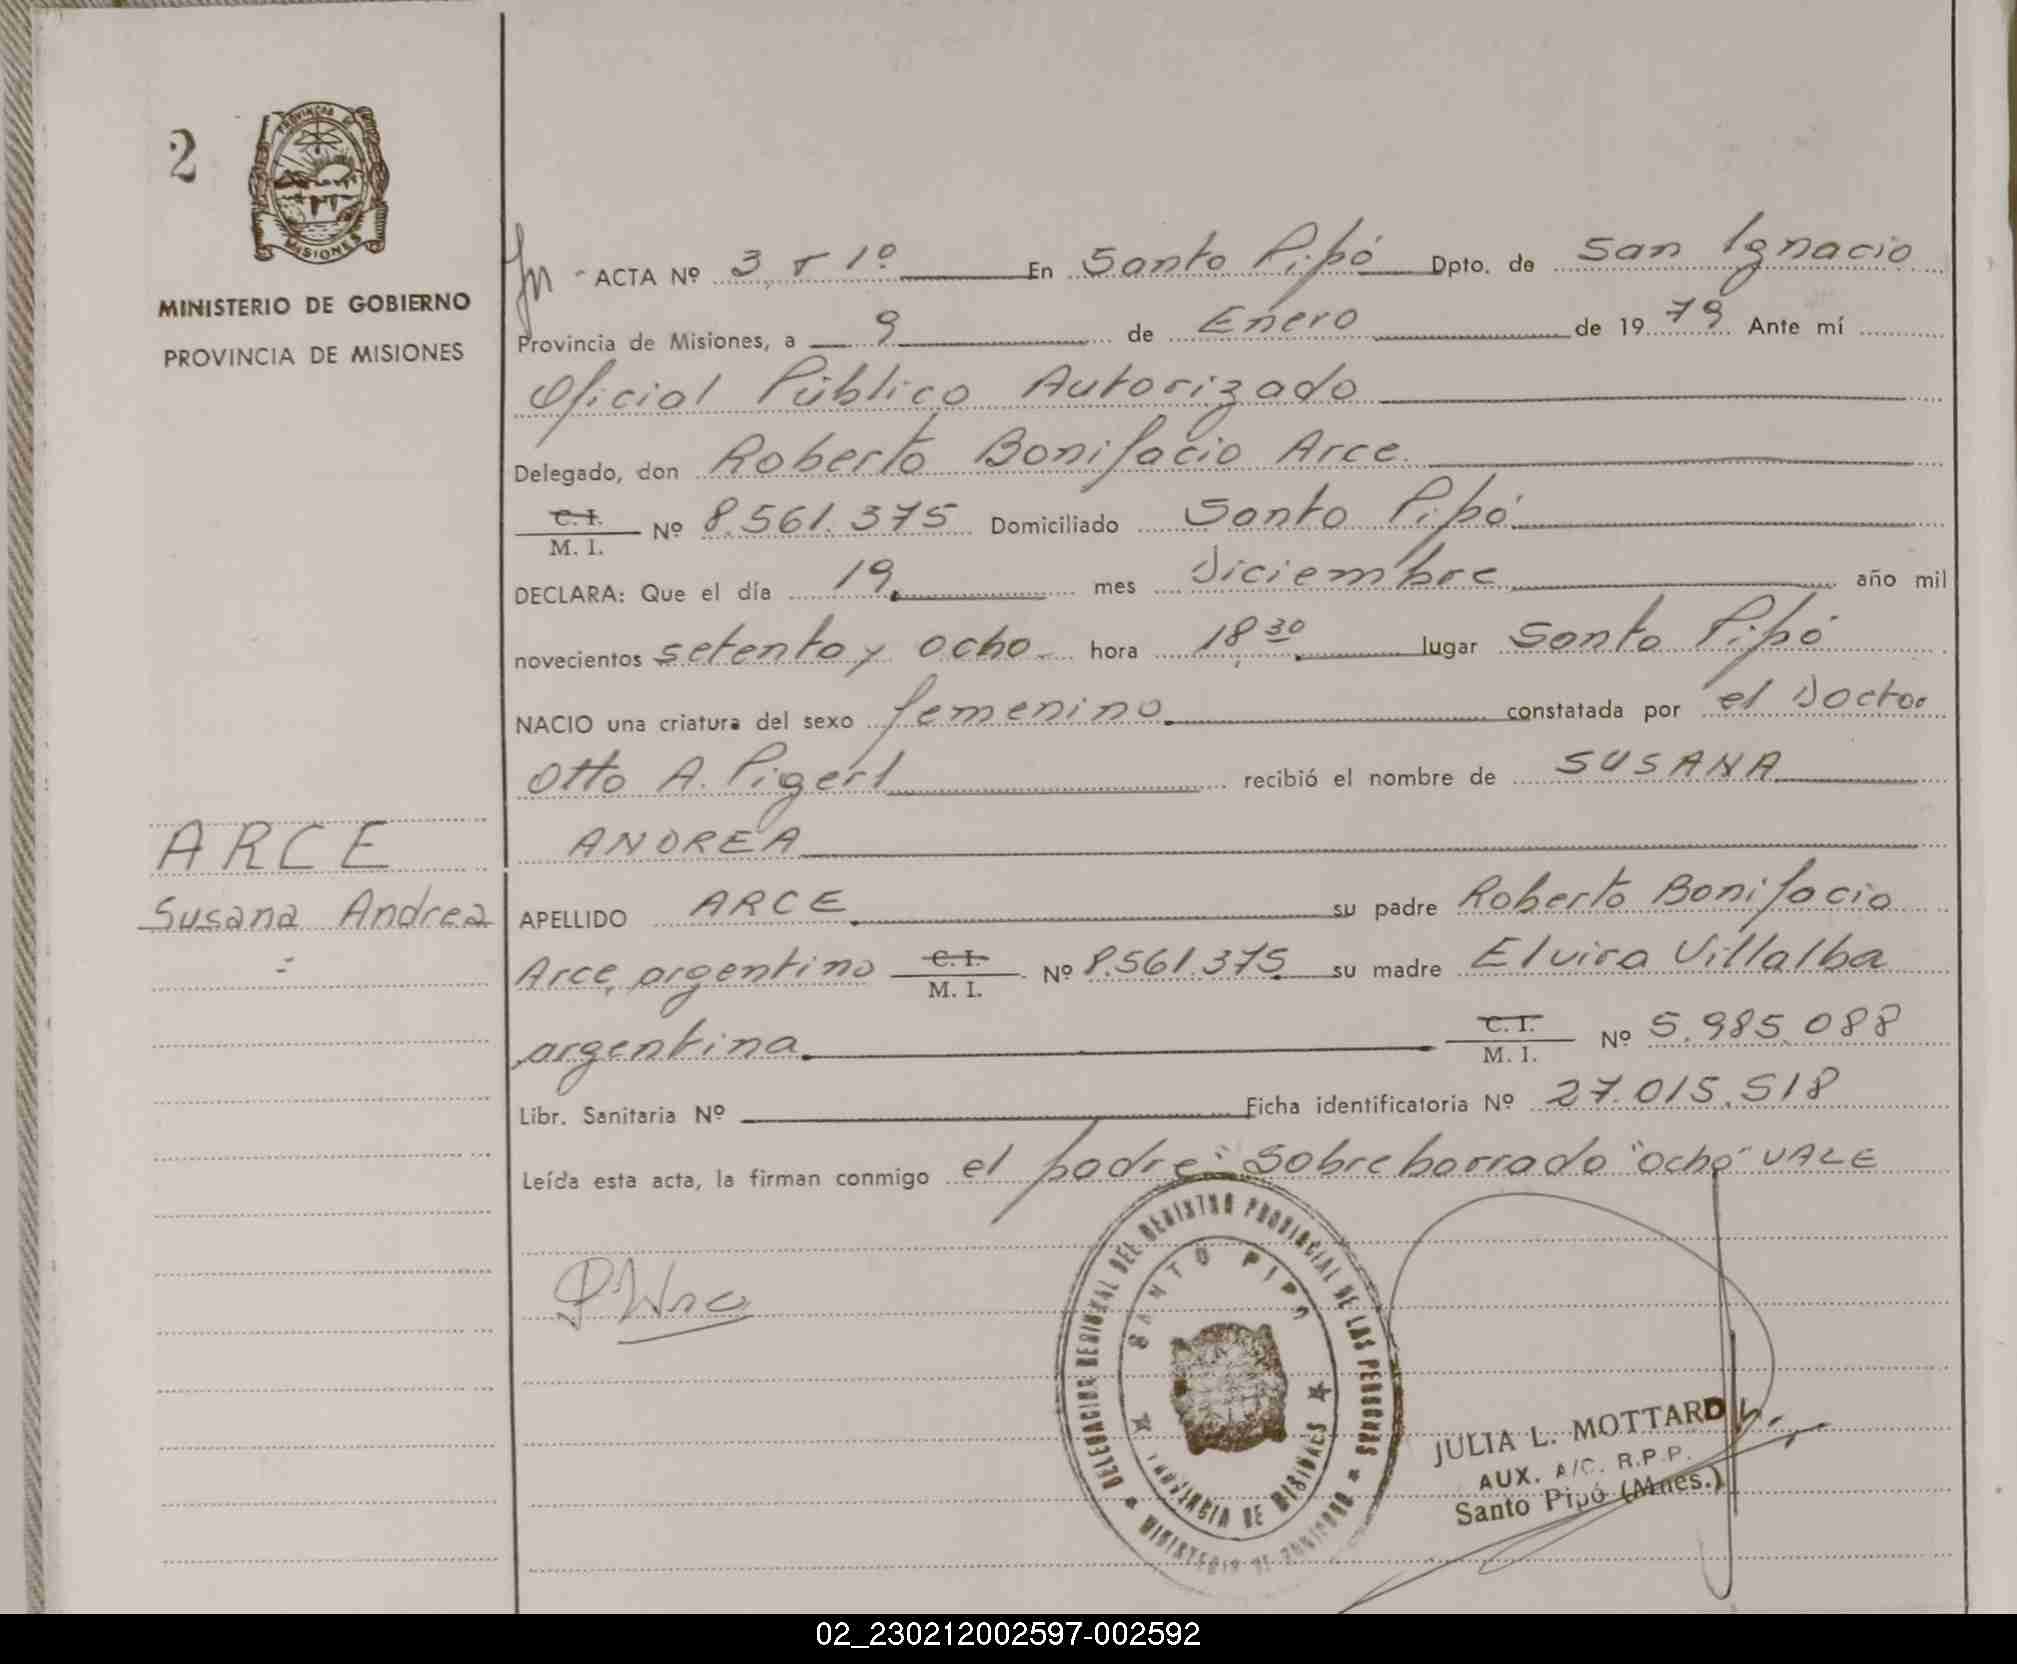 2
PROVINCIA DE
MISIONES
MINISTERIO DE GOBIERNO
PROVINCIA DE MISIONES
ARCE
Susana Andrea
ACTA Nº 3 T 1º En Santo Pipó Dpto. de San Ignacio
Provincia de Misiones, a 9 de Enero de 1979 Ante mí
Oficial Público Autorizado
Delegado, don Roberto Bonifacio Arce
C. I.
M. I. Nº 8.561.375 Domiciliado Santo Pipó
DECLARA: Que el día 19 mes Diciembre año mil
novecientos setenta y ocho hora 18,30 lugar Santo Pipó
NACIO una criatura del sexo femenino constatada por el Doctor
Otto A. Pigerl recibió el nombre de SUSANA
ANDREA
APELLIDO ARCE su padre Roberto Bonifacio
Arce, argentino C. I. M. I. Nº 8.561.375 su madre Elvira Villalba
argentina C. I. M. I. Nº 5.985.088
Libr. Sanitaria Nº Ficha identificatoria Nº 27.015.518
Leída esta acta, la firman conmigo el padre: Sobre borrado "ocho" VALE
DELEGACION REGIONAL DEL REGISTRO PROVINCIAL DE LAS PERSONAS
SANTO PIPO
PROVINCIA DE MISIONES
MINISTERIO DE GOBIERNO
JULIA L. MOTTARD
AUX. A/C. R.P.P.
Santo Pipó (Mnes.)
02_230212002597-002592